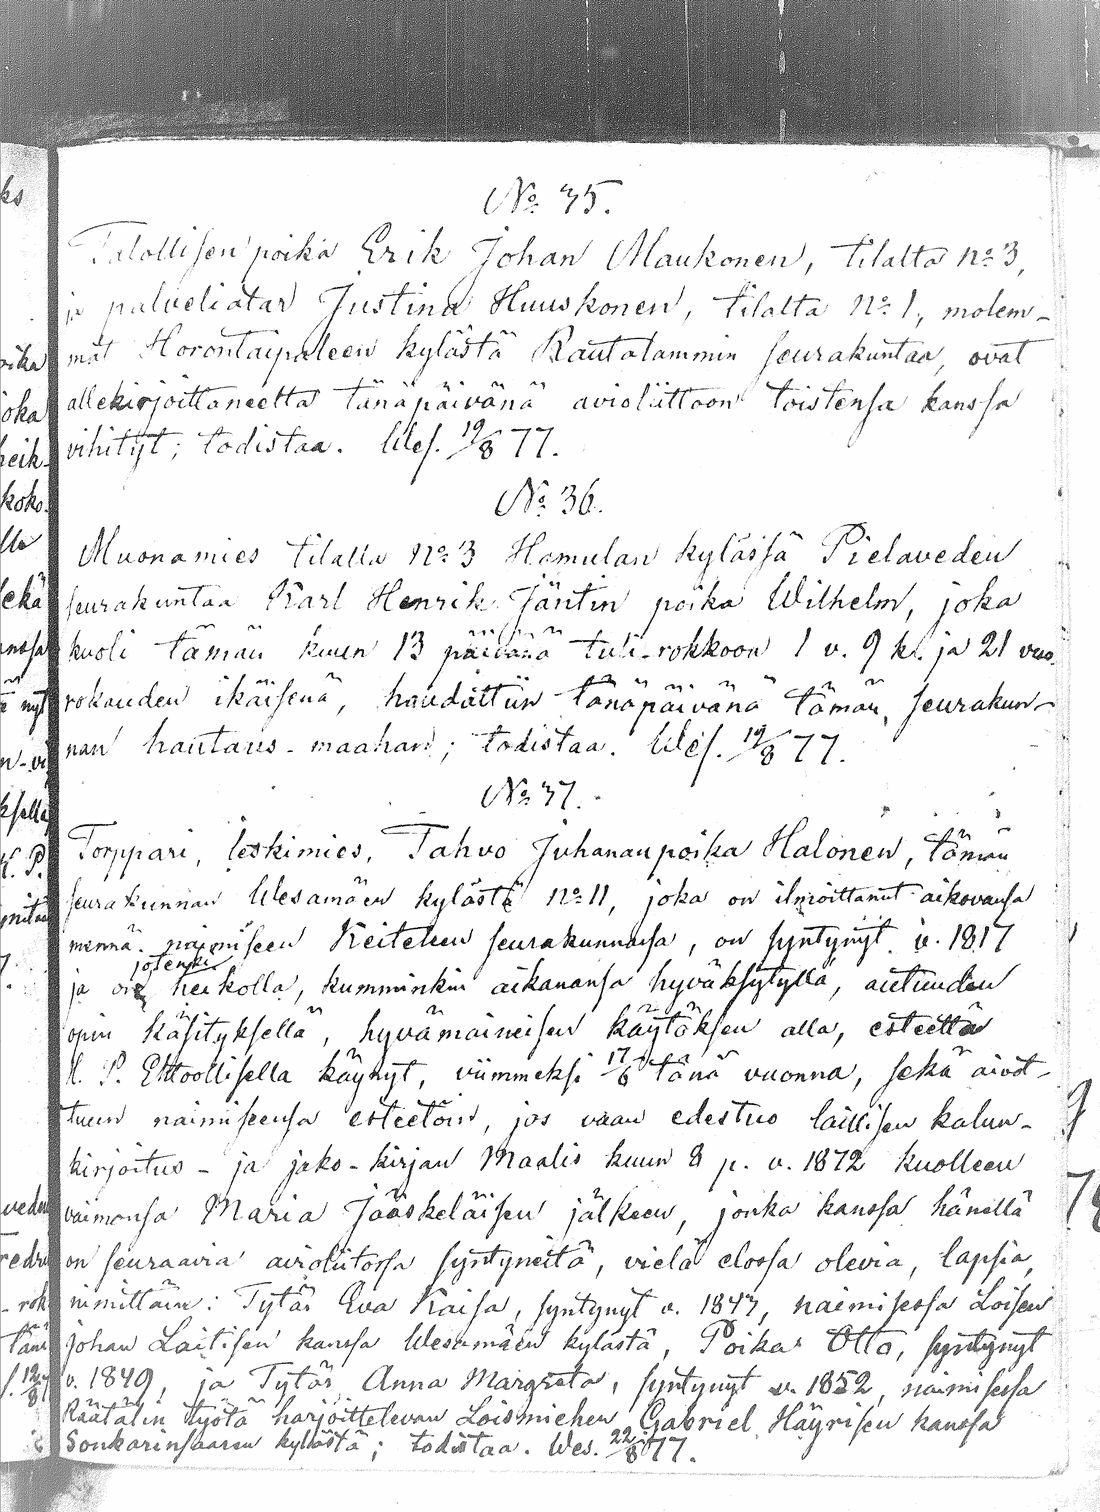 No 35.
Talollisen poika Erik Johan Maukonen, tilalta no 3,
ja palveliatar Justina Huuskonen, tilalta No 1, molem-
mat Horontaipaleen kylästä Rautalammin seurakuntaa, ovat
allekirjoittaneelta tänäpäivänä avioliittoon toistensa kanssa
vihityt; todistaa. Wes. 19/8 77.
No 36.
Muonamies tilalla No 3 Hamulan kylässä Pielaveden
seurakuntaa Karl Henrik Jäntin poika Wilhelm, joka
kuoli tämän kuun 13 päivänä tuli-rokkoon 1 v. 9 k. ja 21 vuo
rokauden ikäisenä, haudattiin tänäpäivänä tämän, seurakun-
nan hautaus-maahan; todistaa. Wes. 19/8 77.
No 37.
Torppari, leskimies, Tahvo Juhananpoika Halonen, tämän
seurakunnan Wesamäen kylästä no 11, joka on ilmoittanut aikovansa
mennä naimiseen Keiteleen seurakunnassa, on syntynyt v. 1817
jotenki
ja on heikolla, kumminkin aikanansa hyväksytyllä, autuuden
opin käsityksellä, hyvämaineisen käytöksen alla, esteettä
H. P. Ehtoollisella käynyt, viimmeksi 17/6 tänä vuonna, sekä aivot-
tuun naimiseensa esteetöin, jos vaan edestuo laillisen kalun-
kirjoitus- ja jako-kirjan Maalis kuun 8 p. v. 1872 kuolleen
vaimonsa Maria Jääskeläisen jälkeen, jonka kanssa hänellä
on seuraavia aviolitossa syntyneitä, vielä elossa olevia, lapsia,
nimittäin: Tytär Eva Kaisa, syntynyt v. 1847, naimisessa Loisen
Johan Laitisen kanssa Wesamäen kylästä, Poika Otto, syntynyt
v. 1849, ja Tytär Anna Margreta, syntynyt v. 1852, naimisessa
Räätälin työtä harjoittelevan Loismiehen Gabriel Häyrisen kanssa
Sonkarinsaaren kylästä; todistaa. Wes. 22/8 77.